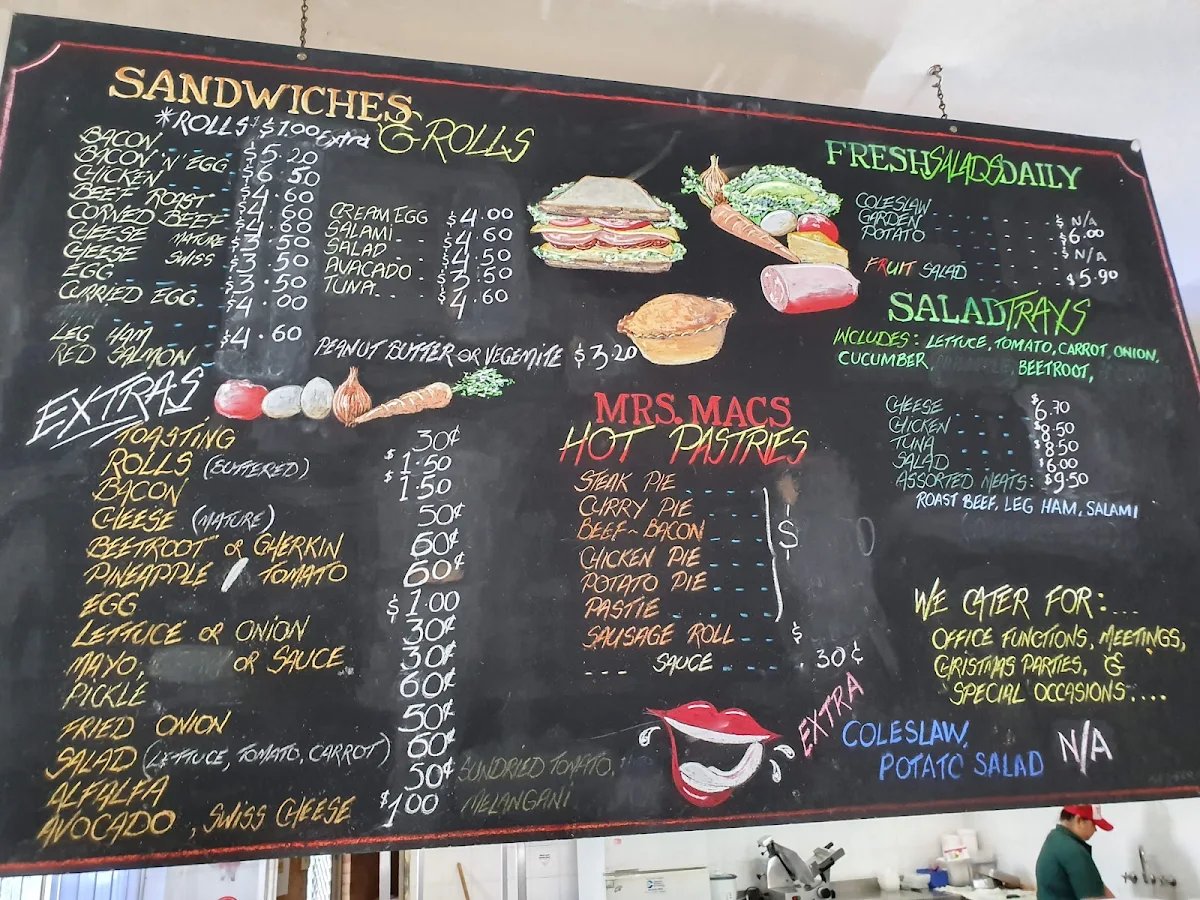 SANDWICHES
& ROLLS
*ROLLS $1.00 Extra
BACON $5.20
BACON 'N' EGG $6.50
CHICKEN $4.60
BEEF ROAST $4.60
CORNED BEEF $4.60
CHEESE MATURE $3.50
CHEESE SWISS $3.50
EGG $3.50
CURRIED EGG $4.00
LEG HAM $4.60
RED SALMON
CREAM EGG $4.00
SALAMI $4.60
SALAD $4.50
AVACADO $3.50
TUNA $4.60
PEANUT BUTTER OR VEGEMITE $3.20
EXTRAS
TOASTING 30¢
ROLLS (BUTTERED) $1.50
BACON $1.50
CHEESE (MATURE) 50¢
BEETROOT OR GHERKIN 60¢
PINEAPPLE / TOMATO 60¢
EGG $1.00
LETTUCE OR ONION 30¢
MAYO, OR SAUCE 30¢
PICKLE 60¢
FRIED ONION 50¢
SALAD (LETTUCE, TOMATO, CARROT) 60¢
ALFALFA 50¢
AVOCADO, SWISS CHEESE $1.00
SUNDRIED TOMATO,
MELANGANI
MRS. MACS
HOT PASTRIES
STEAK PIE
CURRY PIE
BEEF-BACON $
CHICKEN PIE
POTATO PIE
PASTIE
SAUSAGE ROLL $
SAUCE .30¢
FRESH SALADS DAILY
COLESLAW $ N/A
GARDEN $6.00
POTATO $ N/A
FRUIT SALAD $5.90
SALAD TRAYS
INCLUDES: LETTUCE, TOMATO, CARROT, ONION,
CUCUMBER, BEETROOT,
CHEESE $6.70
CHICKEN $8.50
TUNA $8.50
SALAD $6.00
ASSORTED MEATS: $9.50
ROAST BEEF, LEG HAM, SALAMI
WE CATER FOR:...
OFFICE FUNCTIONS, MEETINGS,
CHRISTMAS PARTIES, &
SPECIAL OCCASIONS....
EXTRA
COLESLAW,
POTATO SALAD N/A